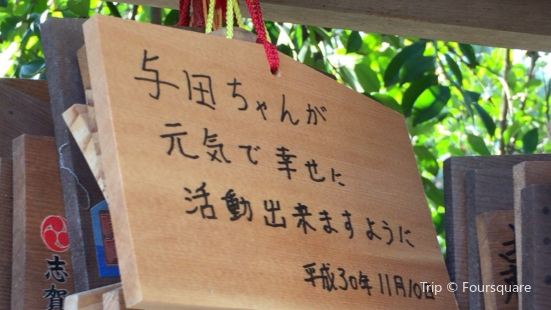 与田ちゃんが
元気で幸せに
活動出来ますように
平成30年11月10日
志賀
Trip © Foursquare